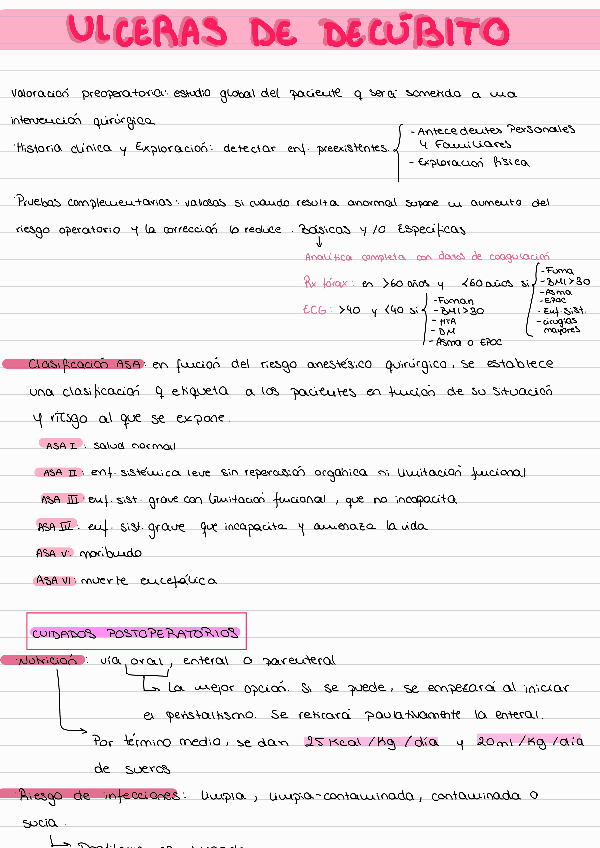 ULCERAS DE DECÚBITO
Valoración preoperatoria: estudio global del paciente q será sometido a una
intervención quirúrgica
Historia clínica y Exploración: detectar enf. preexistentes.
- Antecedentes Personales
y Familiares
- Exploración física
Pruebas complementarias: valiosas si cuando resulta anormal supone un aumento del
riesgo operatorio y la corrección lo reduce. Básicas y/o Específicas
Analítica completa con datos de coagulación
Rx tórax: en >60 años y <60 años si
- Fuma
- BMI>30
- Asma
- EPOC
- Enf. sist.
- cirugías
mayores
ECG: >40 y <40 si
- Fuman
- BMI>30
- HTA
- DM
- Asma o EPOC
Clasificación ASA: en función del riesgo anestésico quirúrgico, se establece
una clasificación q etiqueta a los pacientes en función de su situación
y riesgo al que se expone.
ASA I: salud normal
ASA II: enf. sistémica leve sin repercusión orgánica ni limitación funcional
ASA III: enf. sist. grave con limitación funcional, que no incapacita
ASA IV: enf. sist. grave que incapacita y amenaza la vida
ASA V: moribundo
ASA VI: muerte encefálica
CUIDADOS POSTOPERATORIOS
Nutrición: vía oral, enteral o parenteral
La mejor opción. Si se puede, se empezará al iniciar
el peristaltismo. Se retirará paulativamente la enteral.
Por término medio, se dan 25Kcal/Kg/día y 20ml/Kg/día
de sueros
Riesgo de infecciones: limpia, limpia-contaminada, contaminada o
sucia.